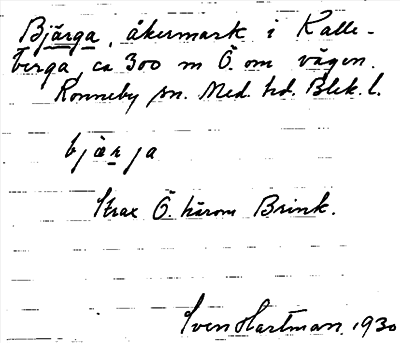 Bjärga, åkermark i Kalle-
berga, ca 300 m Ö. om vägen.
Ronneby sn. Med. hd. Blek. l.
bjärja
Strax Ö. härom Brink.
Sven Hartman, 1930